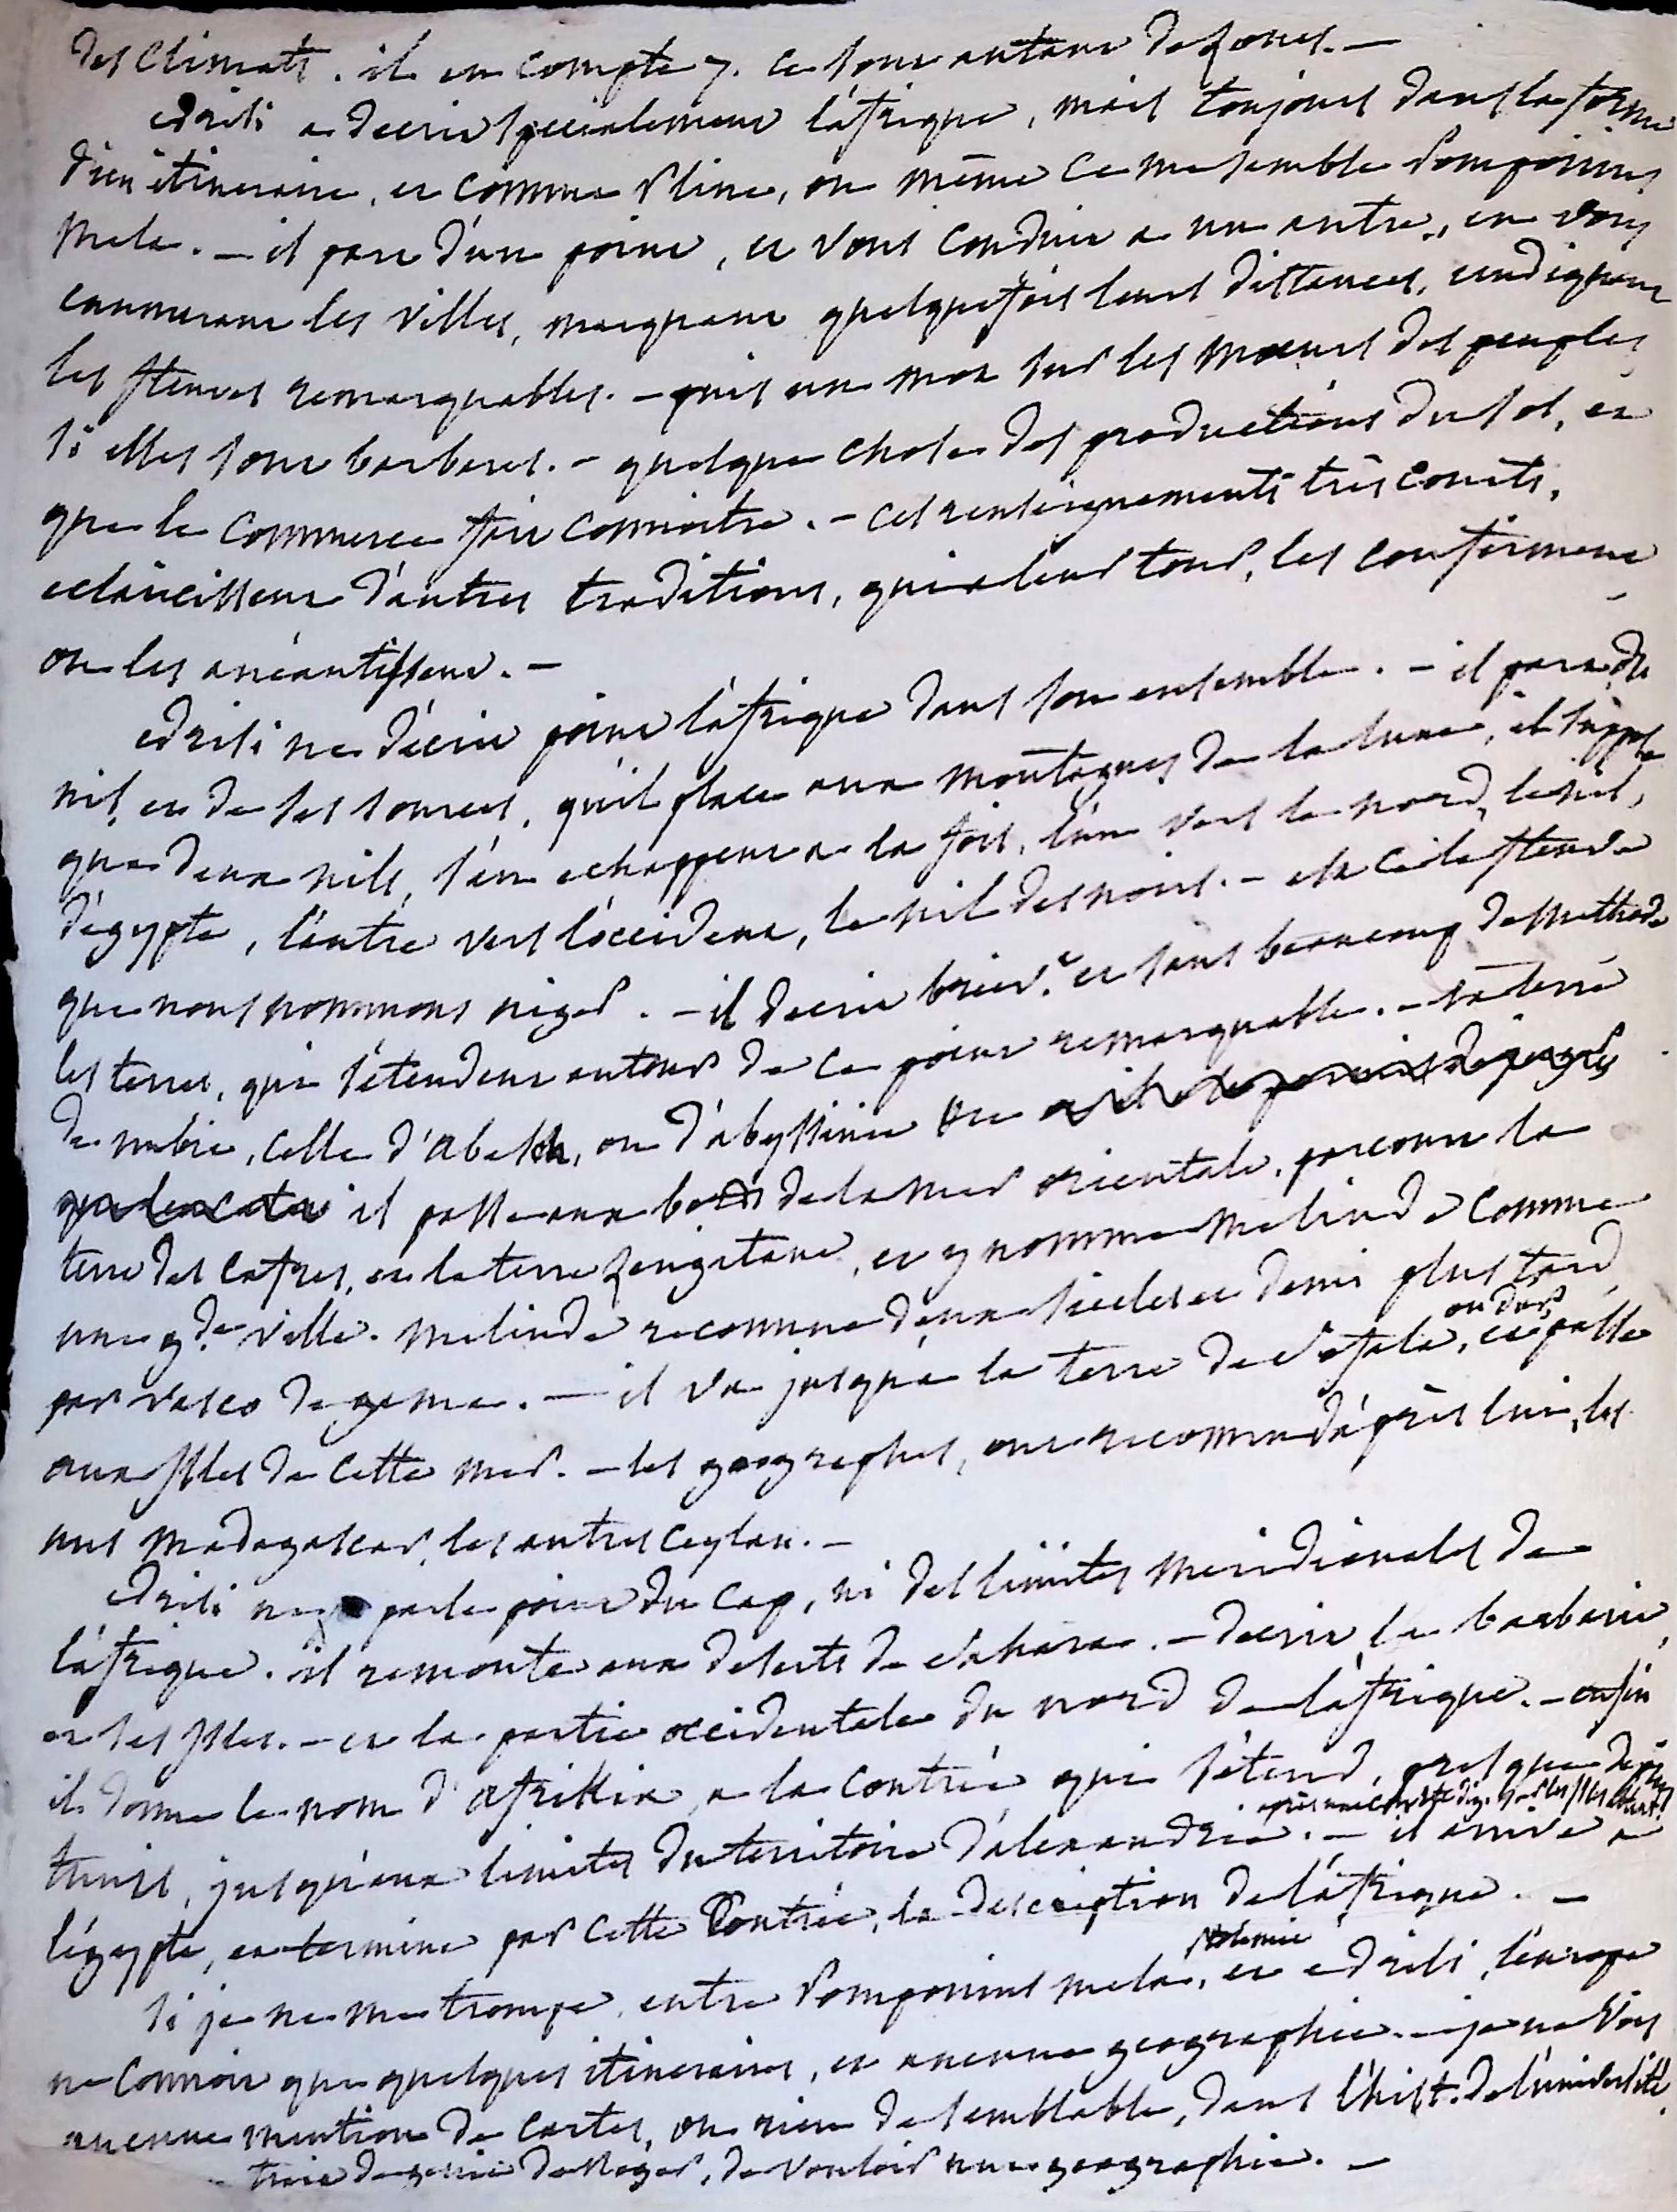 des climats. il en compte 7. ce sont autant de zones. —
edrisi a decrit specialement l'afrique, mais toujours dans la forme
d'un itineraire, et comme Pline, ou même ce me semble Pomponius
Mela. — il part d'un point, et vous conduit a un autre, en vous
enumerant les villes, marquant quelquefois leurs distances, indiquant
les fleuves remarquables. — puis un mot sur les mœurs des peuples
si elles sont barbares. — quelque chose des productions du sol, et
que le commerce fait connoitre. — ces renseignements très courts,
eclaircissent d'autres traditions, qui a leur tour, les confirment
ou les anéantissent. —
edrisi ne décrit point l'afrique dans son ensemble. — il part du
nil, et de ses sources, qu'il place aux montagnes de la lune, il suppose
que deux nils, s'en echappent a la fois, l'un vers le nord, le nil,
d'égypte, l'autre vers l'occident, le nil des noirs. — est ce le fleuve
que nous nommons niger. — il decrit briev.t et sans beaucoup de methode
les terres, qui s'etendent autour de ce point remarquable. — la terre
de nubie, celle d'abesch, ou d'abyssinie
il passe aux bords de la mer orientale, parcourt la
terre des cafres, et la terre zengitane, et y nomme Melinde comme
une g.de ville. Melinde reconnue deux siecles et demi plus tard
par vasco de gama. — il va jusqu'a la terre de Sofala, ou d'or, et passe
aux isles de cette mer. — les geographes, ont reconnu d'après lui, les
uns Madagascar, les autres Ceylan. —
edrisi ne parle point du cap, ni des limites meridionales de
l'afrique. il remonte aux deserts de Sahara. — decrit la barbarie,
et ses isles. — et la partie occidentale du nord de l'afrique. — enfin
il donne le nom d'afrikia, a la contrée qui s'étend, presque depuis
tunis, jusqu'aux limites du territoire d'alexandrie. — après une courte sur les isles il arrive a
l'égypte, et termine par cette Contrée, la description de l'afrique. —
si je ne me trompe, entre Pomponius mela, Ptolemée et edrisi, l'europe
ne connoit que quelques itineraires, et aucune geographie. — je ne vois
aucune mention de cartes, ou rien de semblable, dans l'hist. de l'université.
trait de genie de Roger, de vouloir une geographie. —